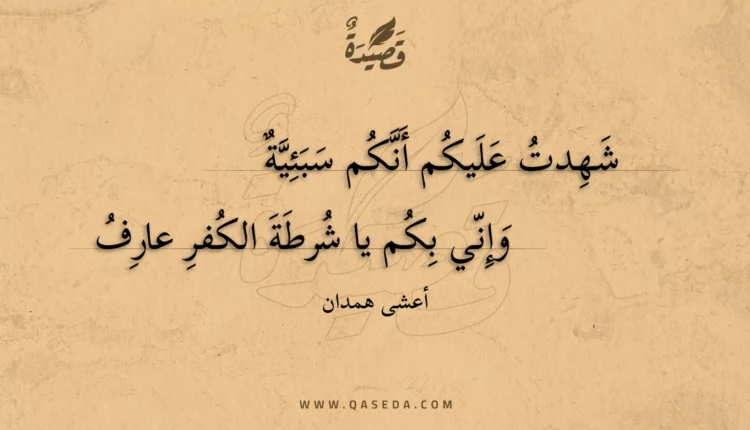 قَصِيدَةٌ
شَهِدتُ عَلَيكُم أَنَّكُم سَبَئِيَّةٌ
وَإِنّي بِكُم يا شُرطَةَ الكُفرِ عارِفُ
أعشى همدان
WWW.QASEDA.COM